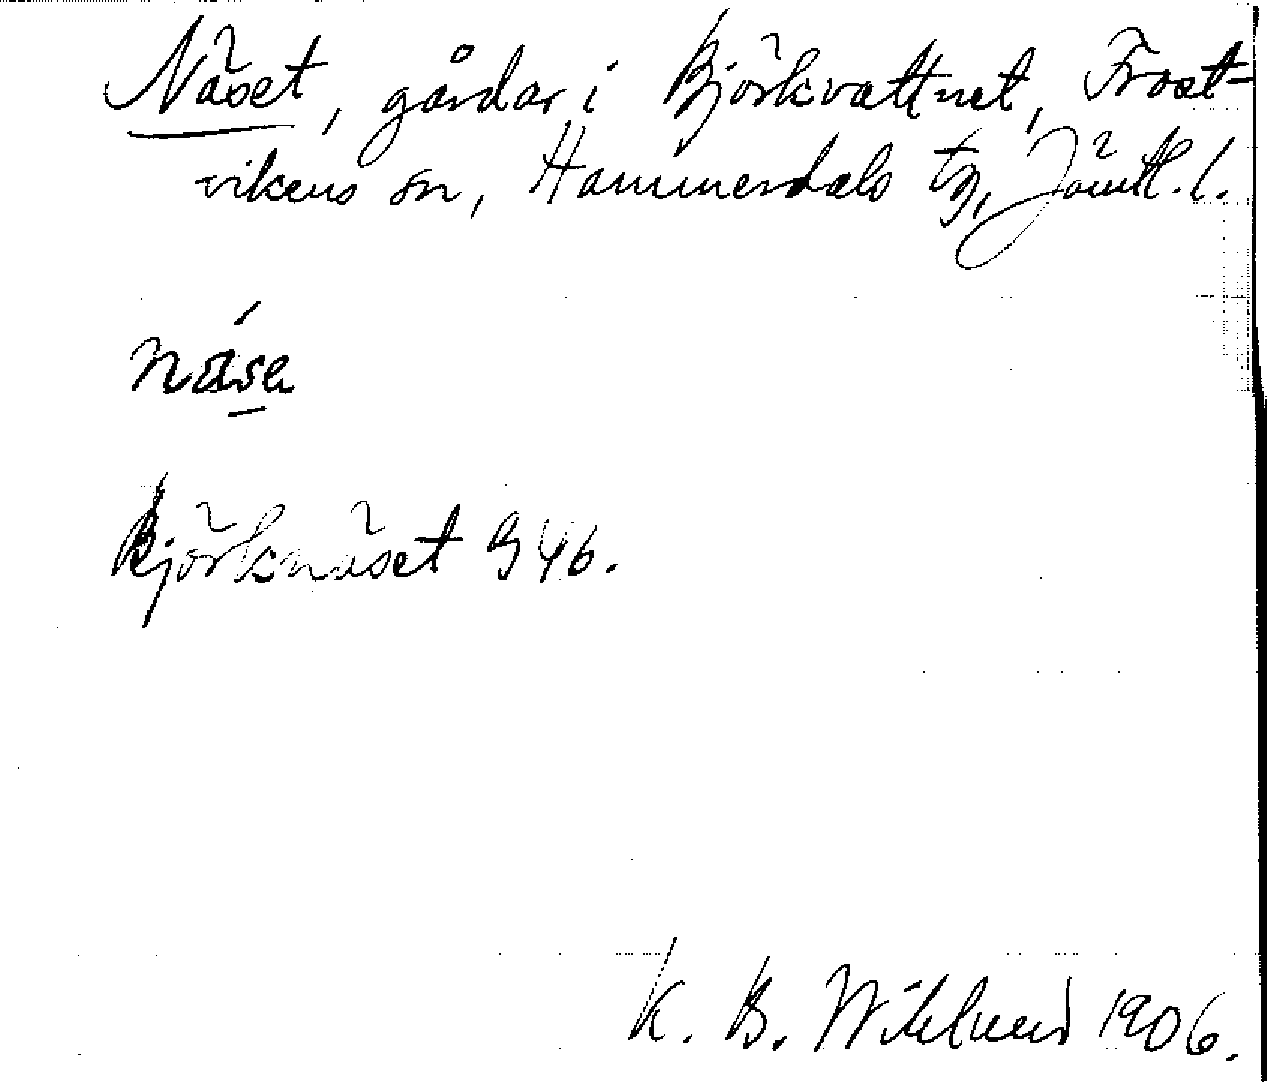 Näset, gårdar i Björkvattnet, Frost-
vikens sn, Hammerdals tg, Jämtl. l.
Björknäset G46.
K. B. Wiklund 1906.